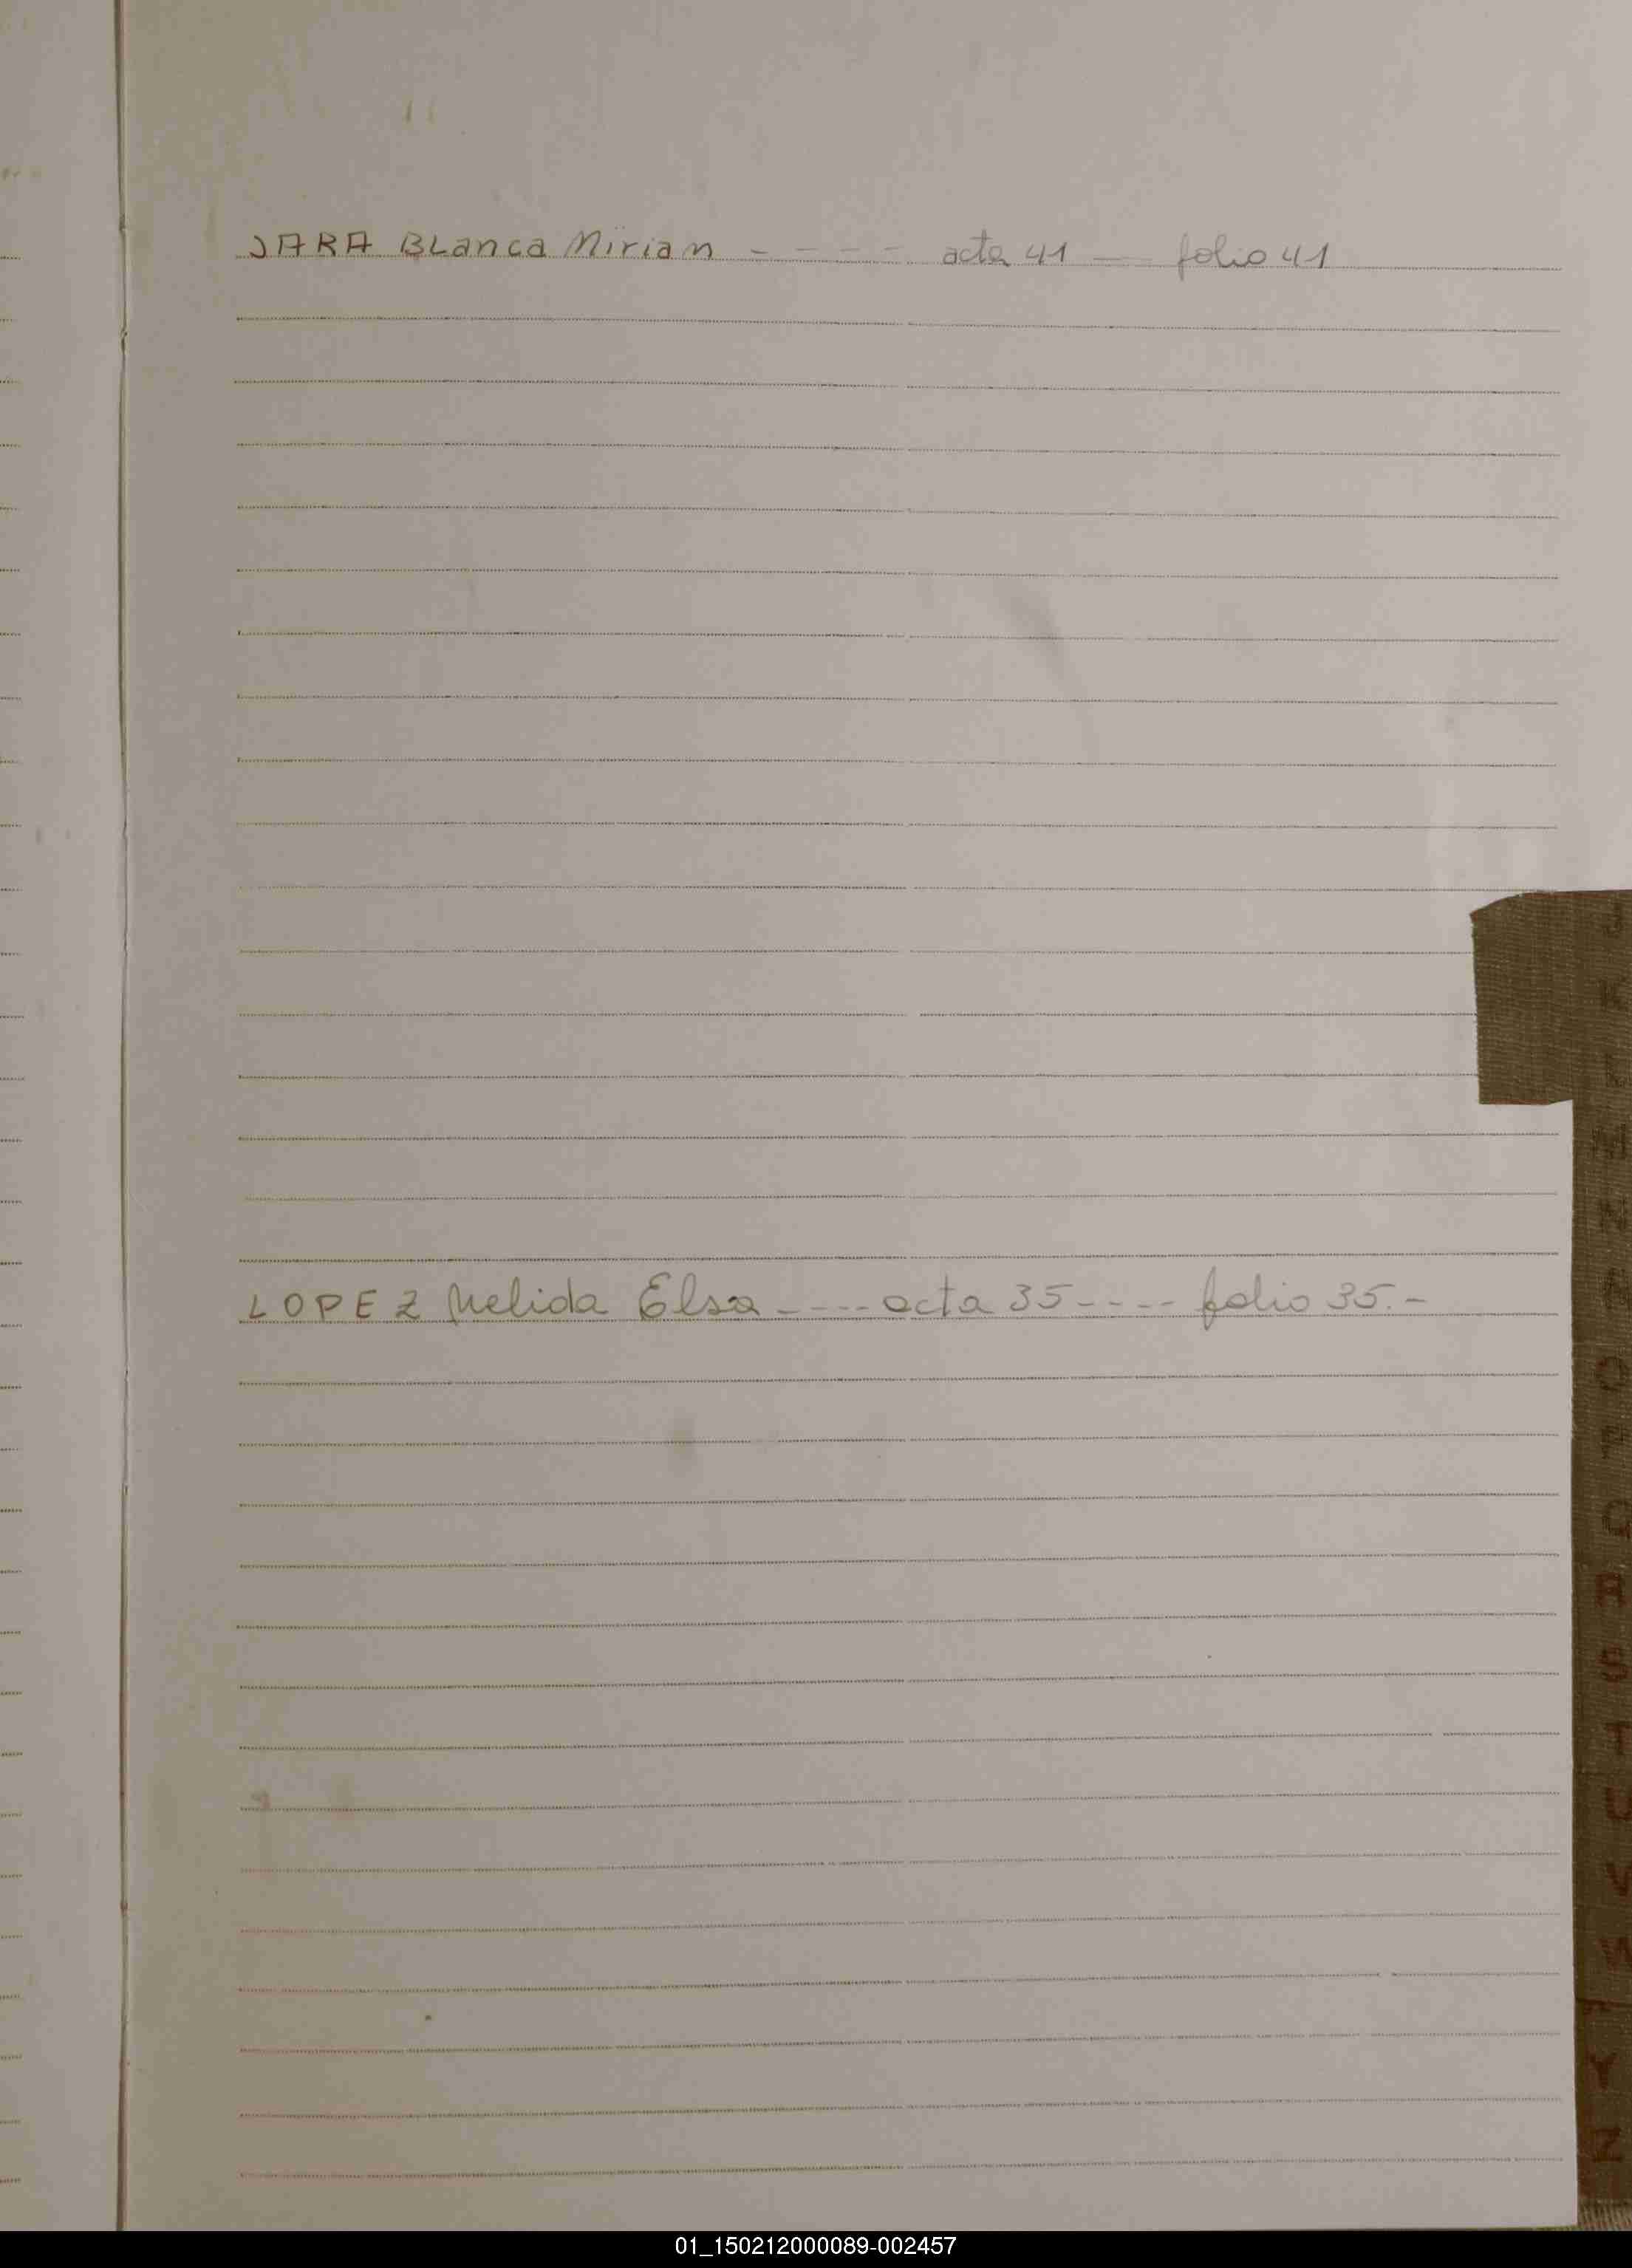 JARA BLanca Mirian - - - - - acta 41 --- folio 41
J
K
L
M
N
LOPEZ Nelida Elsa - - - - acta 35 - - - - folio 35.-
O
P
Q
R
S
T
U
V
W
Y
Z
01_150212000089-002457